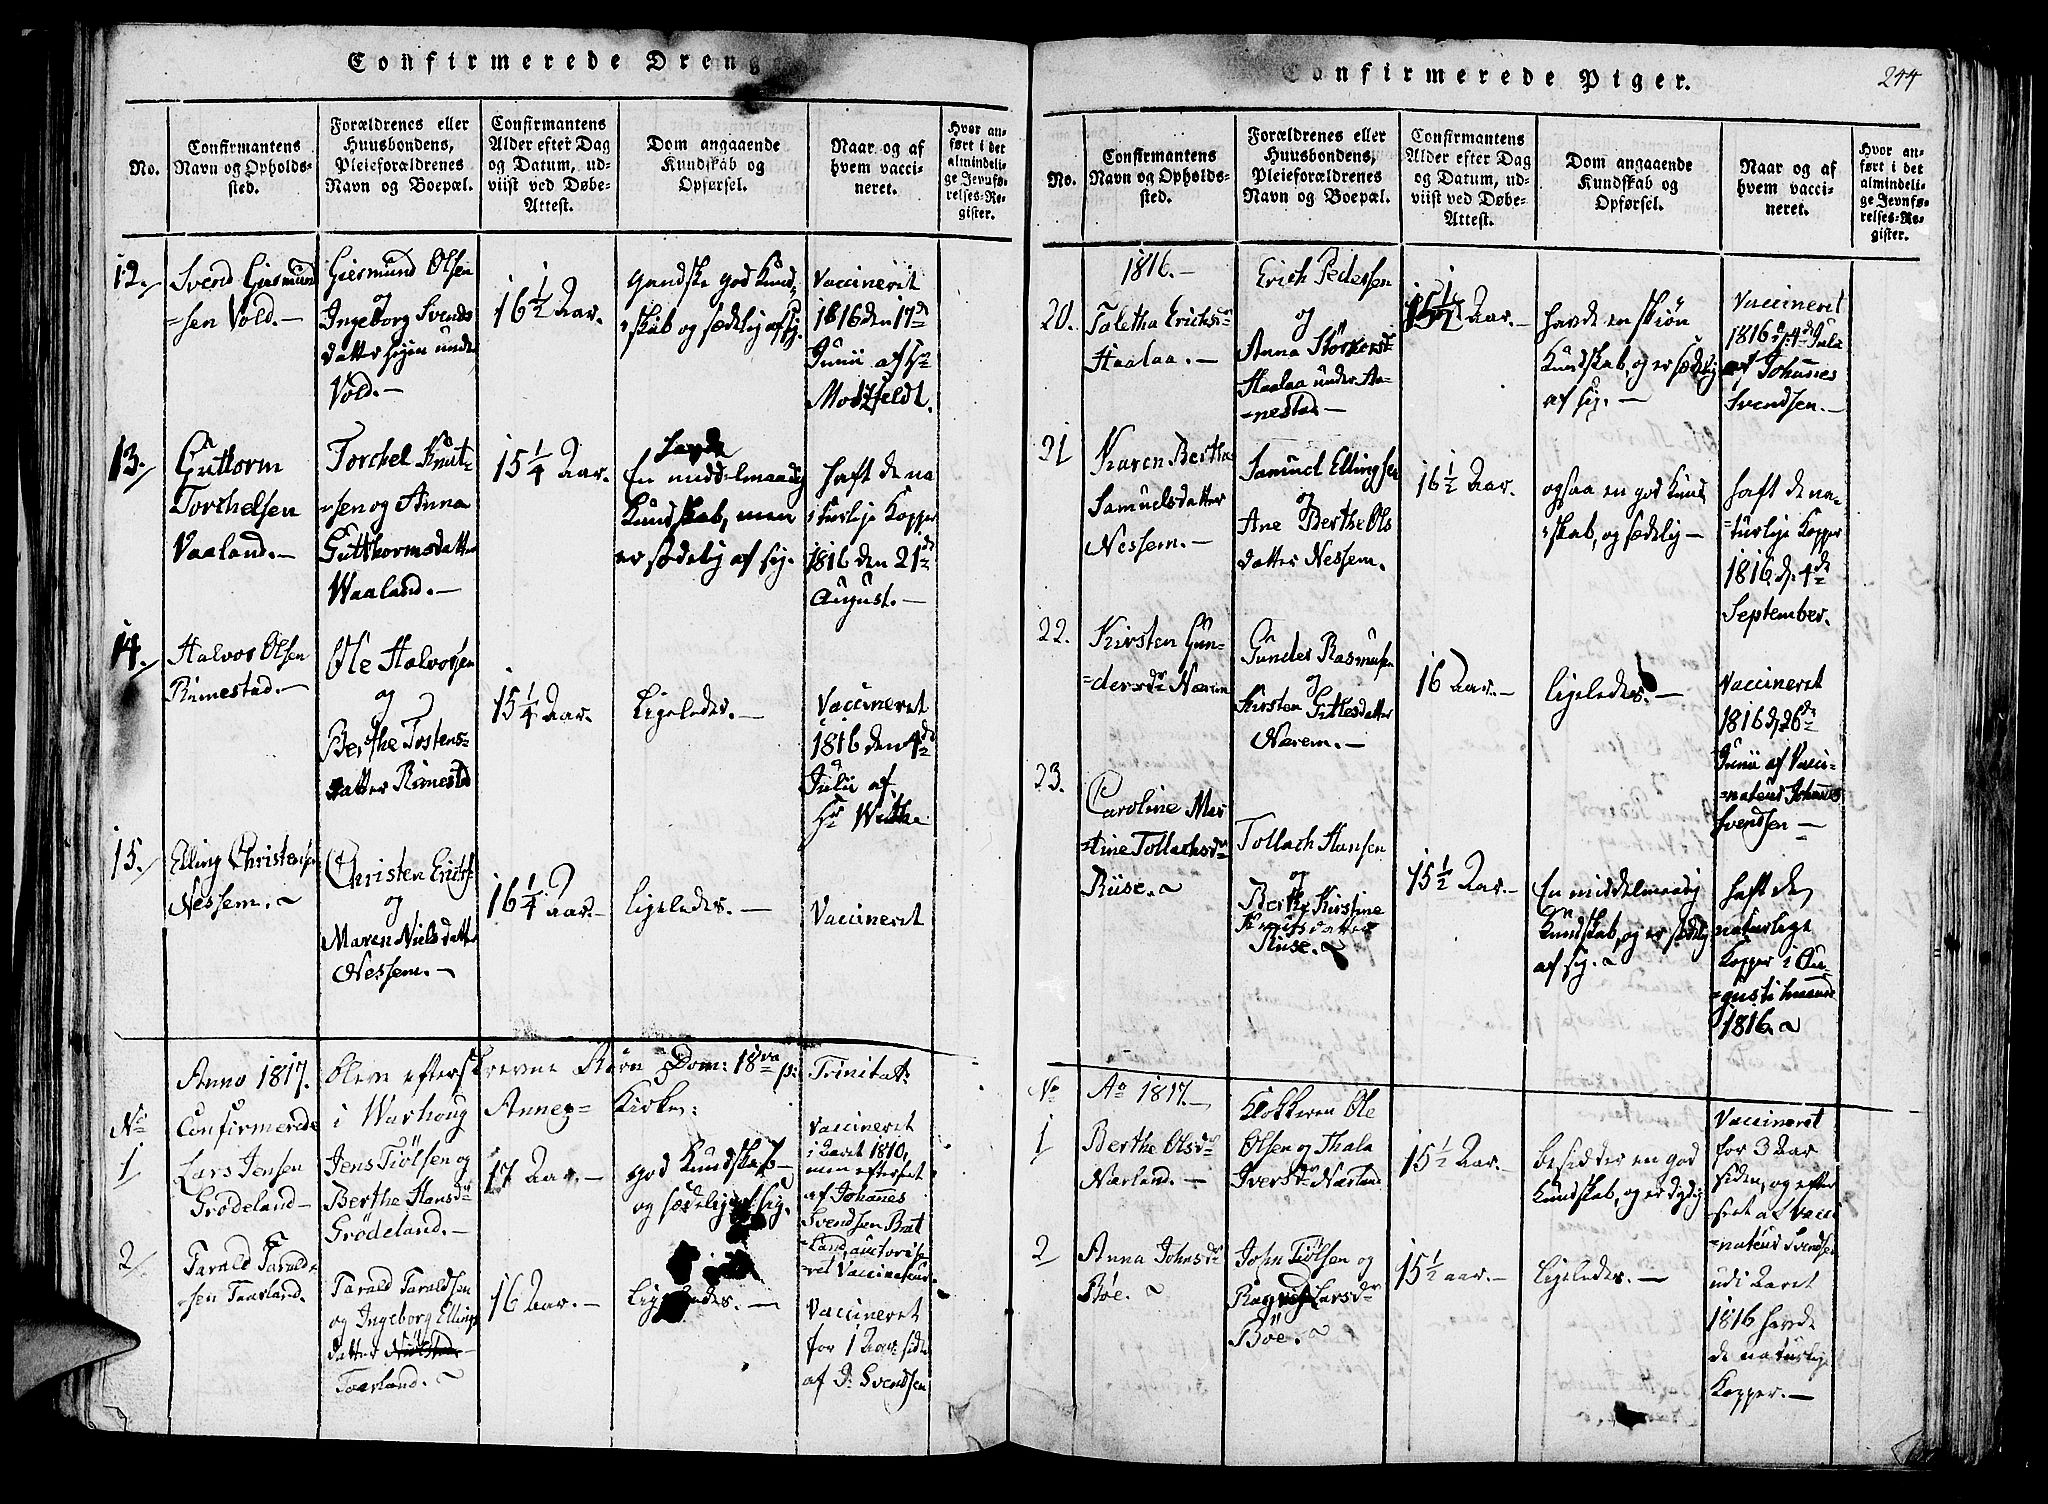 Confirmerede Dreng
No.
Confirmantens
Navn og Opholds-
sted.
Forældrenes eller
Huusbondens,
Pleieforældrenes
Navn og Boepæl.
Confirmantens
Alder efter Dag
og Datum, ud-
viist ved Døbe-
Attest.
Dom angaaende
Kundskab og
Opførsel.
Naar og af
hvem vacci-
neret.
Hvor an-
ført i det
almindeli-
ge Jevnfø-
relses-Re-
gister.
12.
Svend Giesmund
=sen Vold.
Giesmund Olsen
og
Ingeborg Svends
datter under
Vold.
16 1/2 Aar.
gandske god Kund
skab og sædelig af sig.
Vaccineret
1816 den 17de
Junii af Hr
Motzfeldt.
13.
Guttorm
Torchelsen
Vaaland.
Torchel Knut
sen og Anna
Gutthormsdatter
Waaland.
15 1/4 Aar.
havde
En middelmaadig
Kundskab, men
er sædelig af sig.
haft de na
turlige Kopper
1816 den 21de
August.
14.
Halvor Olsen
Rimestad.
Ole Halvorsen
og
Berthe Tostens=
datter Rimestad
15 1/4 Aar.
Ligeledes.
Vaccineret
1816 den 4de
Julii af
Hr
15.
Elling Christensen
Nessem.
Christen Erichs
og
Maren Nielsdatter
Nessem.
16 1/4 Aar.
ligeledes.
Vaccineret
Anno 1817. bleve efterskrevne Børn Dom: 18va p: Trinitat:
Confirmerede i Warhoug Annex= Kirke:
No
1
Lars Jensen
Grödeland
Jens Tiölsen og
Berthe Hansdr
Grödeland.
17 Aar.
god Kundskab
og sædelig af sig.
Vaccineret
i Aaret 1810,
men efterset
af Johanes
Svendsen Brat
land, auctorise
ret Vaccinateur
2
Tarald Tarald=
sen Taarland.
Tarald Taraldsen
og Ingeborg Ellings
datter
Taarland.
16 Aar.
Ligeledes.
Vaccineret
for 1 Aar siden
af Do Svendsen
Confirmerede Piger.
244
No.
Confirmantens
Navn og Opholds-
sted.
Forældrenes eller
Huusbondens,
Pleieforældrenes
Navn og Boepæl.
Confirmantens
Alder efter Dag
og Datum, ud-
viist ved Døbe-
Attest.
Dom angaaende
Kundskab og
Opførsel.
Naar og af
hvem vacci-
neret.
Hvor an-
ført i det
almindeli-
ge Jevnfø-
relses-Re-
gister.
1816.
20.
Taletha Erichsdr
Haalaa.
Erich Pedersen
og
Anna Störkersdr
Haalaa under Aa-
nestad
15 1/2 Aar.
havde en skiøn
Kundskab, og er sædelig
af sig.
Vaccineret
1816 d: 4de Julii
af Johannes
Svendsen.
21
Karen Berthe
Samuelsdatter
Nessem.
Samuel Ellingsen
og
Ane Berthe Ols
datter Nessem.
16 1/2 Aar.
ogsaa en god Kund
skab, og sædelig
haft de na-
=turlige Kopper
1816 d. 4de
September.
22.
Kirsten Gun-
=dersdr Nærem
Gunder Rasmusen
og
Kirsten Gitlesdatter
Nærem.
16 Aar.
ligeledes.
Vaccineret
1816 d. 26de
Junii af Vacci-
=nateur Johannes
Svendsen
23.
Caroline Mar
=tine Tollachsdr
Riise.
Tollach Hansen
og
Berthe Kirstine
Knutsdatter
Riise.
15 1/2 Aar.
En middelmaadig
Kundskab, og er sædelig
af sig.
haft de
naturlige
Kopper i Au-
=gusti maaned
1816.
No
Ao 1817.
1
Berthe Olsdr
Nærland.
Klokkeren Ole
Olsen og Thala
Iversdr Nærland
15 1/2 Aar.
besidder en god
Kundskab, og er dydig
Vaccineret
for 3 Aar
siden, og efter
=set af Vacci
=nateur Svendsen
2
Anna Johnsdr
Böe.
John Tiölsen og
Larsdr
Böe.
15 1/2 aar.
ligeledes.
udi Aaret
1816 havde
de naturlige
Kopper.